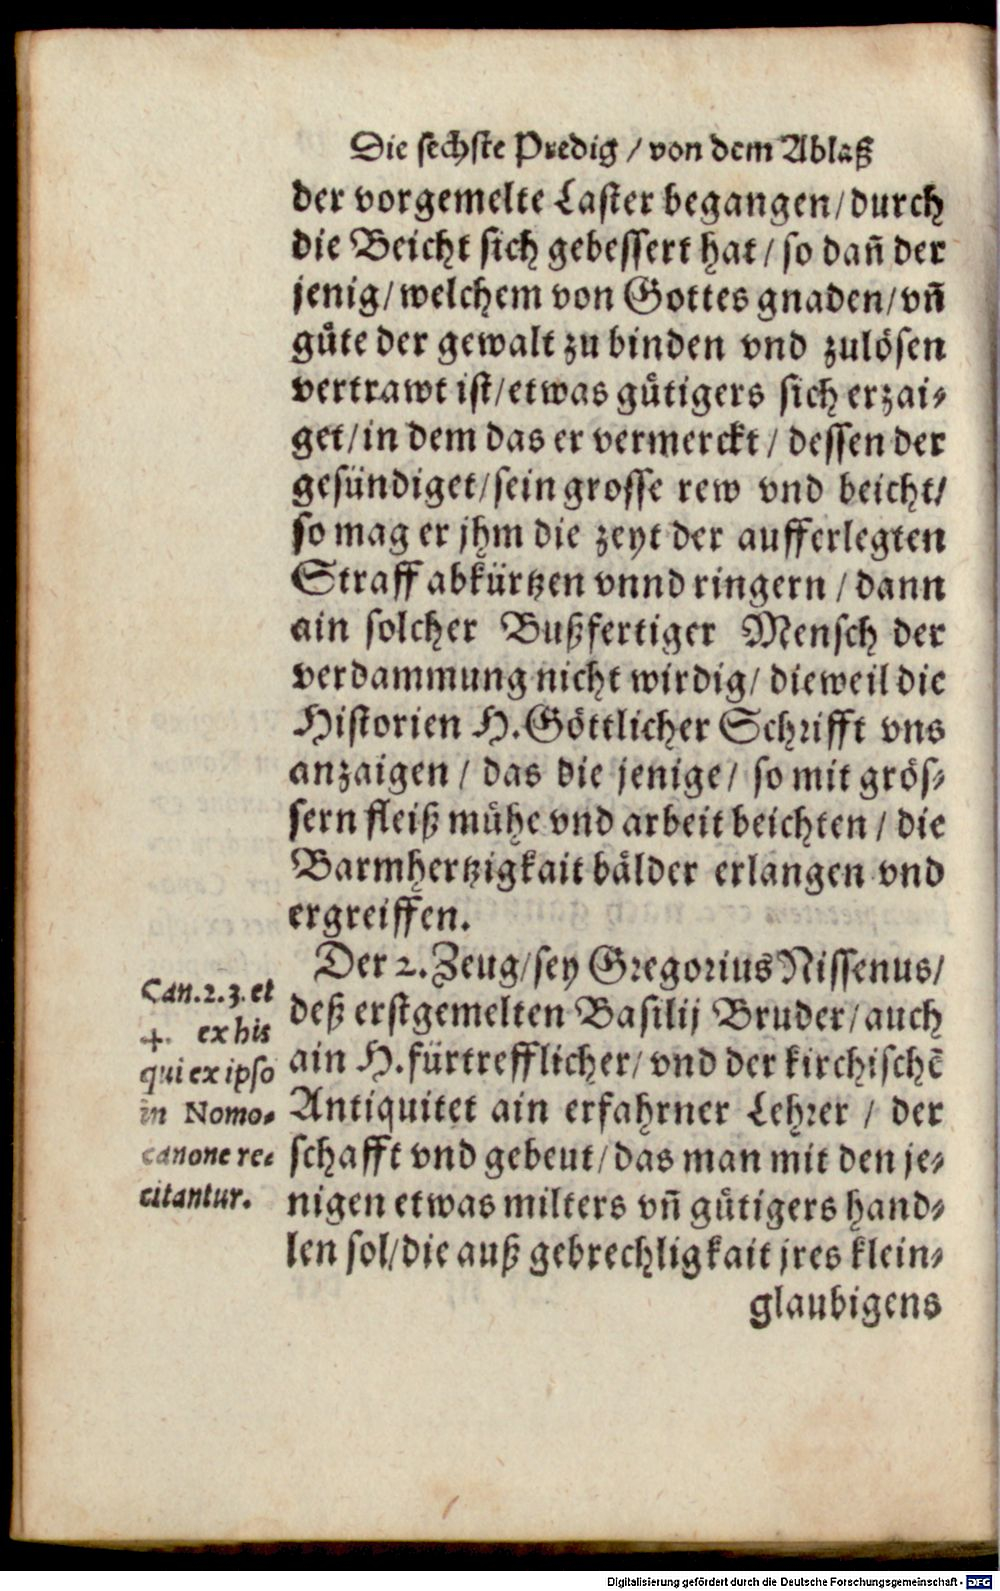 Die sechste Predig / von dem Ablaß
der vorgemelte Laster begangen / durch
die Beicht sich gebessert hat / so dañ der
jenig / welchem von Gottes gnaden / vñ
guͤte der gewalt zu binden vnd zulösen
vertrawt ist / etwas guͤtigers sich erzai⸗
get / in dem das er vermerckt / dessen der
gesündiget / sein grosse rew vnd beicht /
so mag er jhm die zeyt der aufferlegten
Straff abkürtzen vnnd ringern / dann
ain solcher Bußfertiger Mensch der
verdammung nicht wirdig / dieweil die
Historien H. Göttlicher Schrifft vns
anzaigen / das die jenige / so mit grös⸗
sern fleiß muͤhe vnd arbeit beichten / die
Barmhertzigkait bälder erlangen vnd
ergreiffen.
Der 2. Zeug / sey Gregorius Nissenus /
deß erstgemelten Basilij Bruder / auch
ain H. fürtrefflicher / vnd der kirchischẽ
Antiquitet ain erfahrner Lehrer / der
schafft vnd gebeut / das man mit den je⸗
nigen etwas milters vñ guͤtigers hand⸗
len sol / die auß gebrechligkait jres klein⸗
glaubigens
Can. 2. 3. et
4. ex his
qui ex ipso
in Nomo⸗
canone re⸗
citantur.
Digitalisierung gefördert durch die Deutsche Forschungsgemeinschaft - DFG